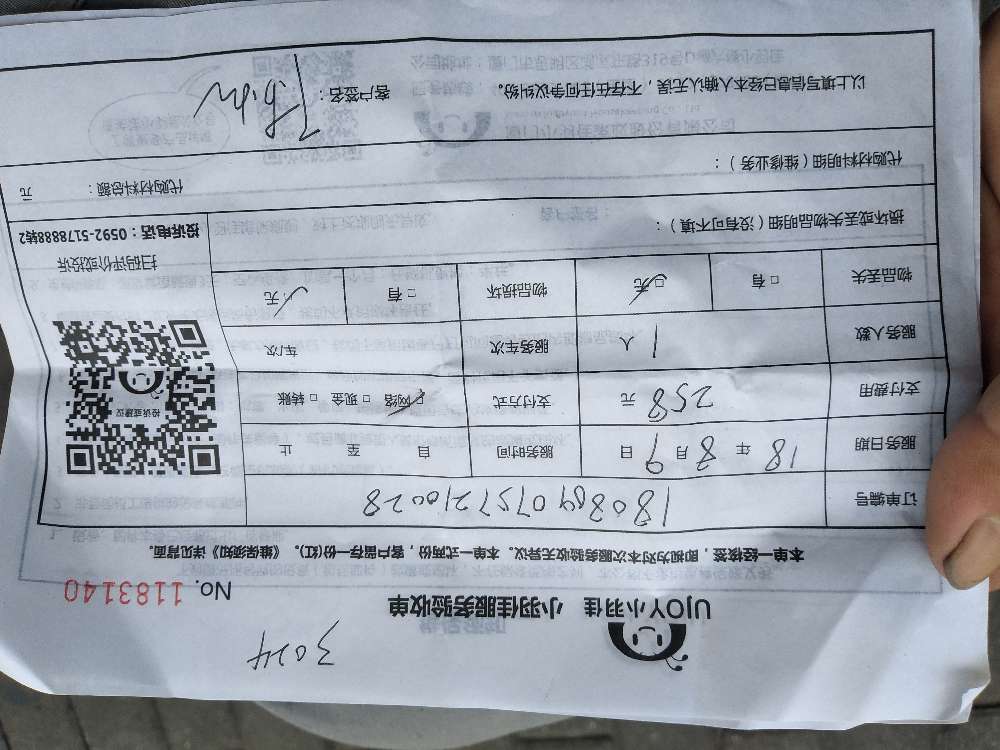 3024
UJOY小羽佳 小羽佳服务验收单 No. 1183140
本单一经接签，即视为对本次服务验收无异议。本单一式两份，客户留存一份(红)。《维保须知》详见背面。
订单编号 1808040757210028
服务日期 18 年 8 月 9 日 服务时间 自 至 止
支付费用 258 元 支付方式 ☑网络 □现金 □转账
服务人数 1 人 服务车次 车/次
物品丢失 □有 ☑无 物品损坏 □有 ☑无
投诉或建议
扫码评价或投诉
投诉电话：0592-5178888转2
损坏或丢失物品明细（没有可不填）：
代购材料明细（维修业务）：
代购材料总额： 元
以上填写信息已经本人确认无误，不存在任何争议纠纷。 客户签名：